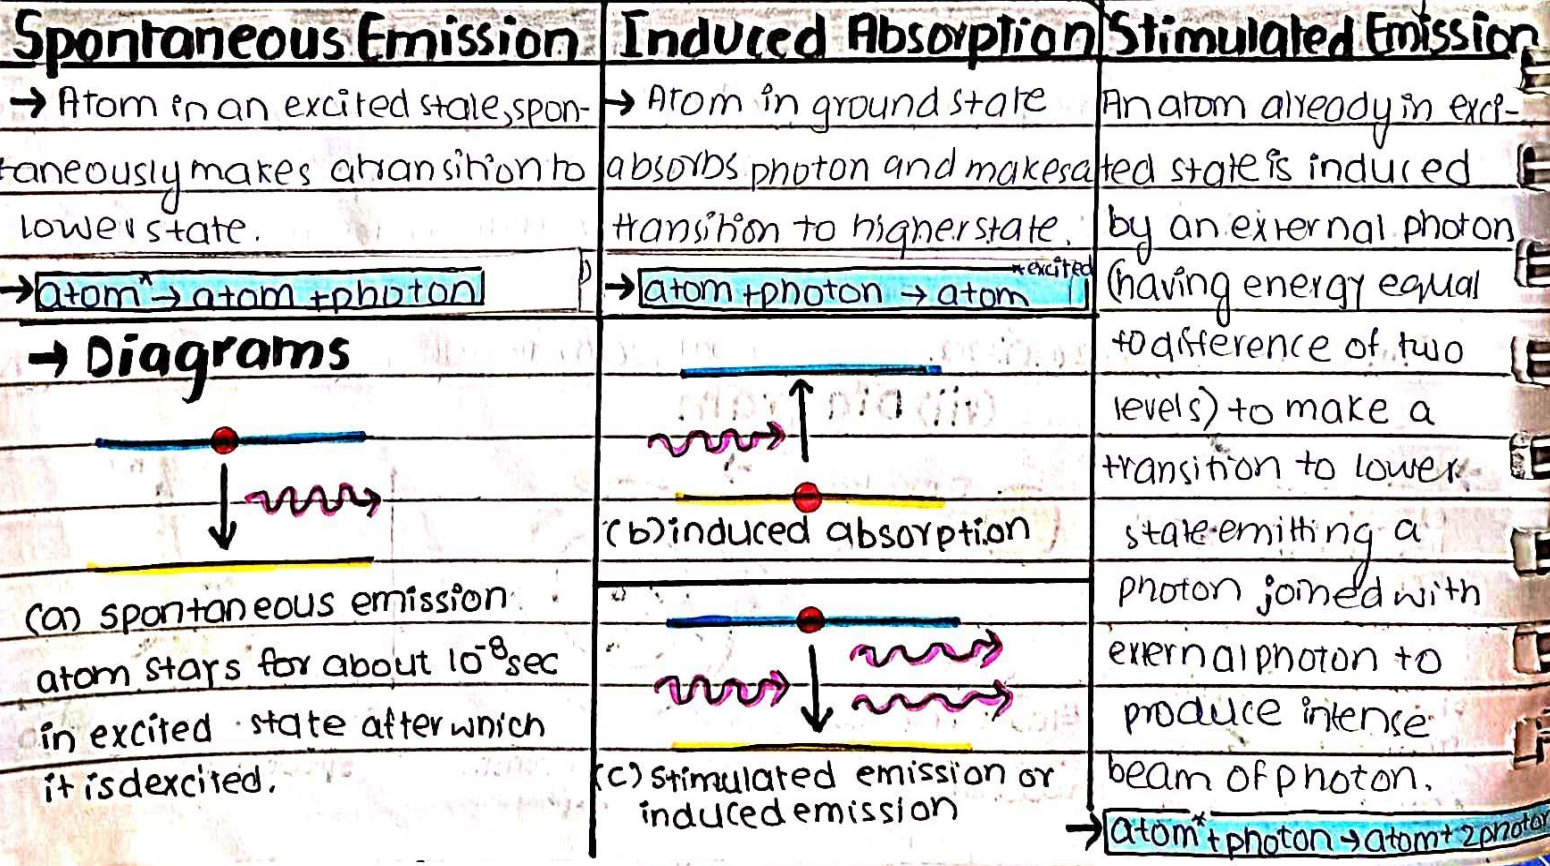 Spontaneous Emission
→ Atom in an excited state, spon-
taneously makes a transition to
lower state.
→ atom* → atom + photon
→ Diagrams
(a) spontaneous emission
atom stays for about 10⁻⁸ sec
in excited state after which
it is dexcited.
Induced Absorption
→ Atom in ground state
absorbs photon and makes a
transition to higher state.
→ atom + photon → atom *excited
(b) induced absorption
(c) stimulated emission or
induced emission
Stimulated Emission
An atom already in exci-
ted state is induced
by an external photon
(having energy equal
to difference of two
levels) to make a
transition to lower
state emitting a
photon joined with
exernal photon to
produce intense
beam of photon.
→ atom* + photon → atom + 2photon